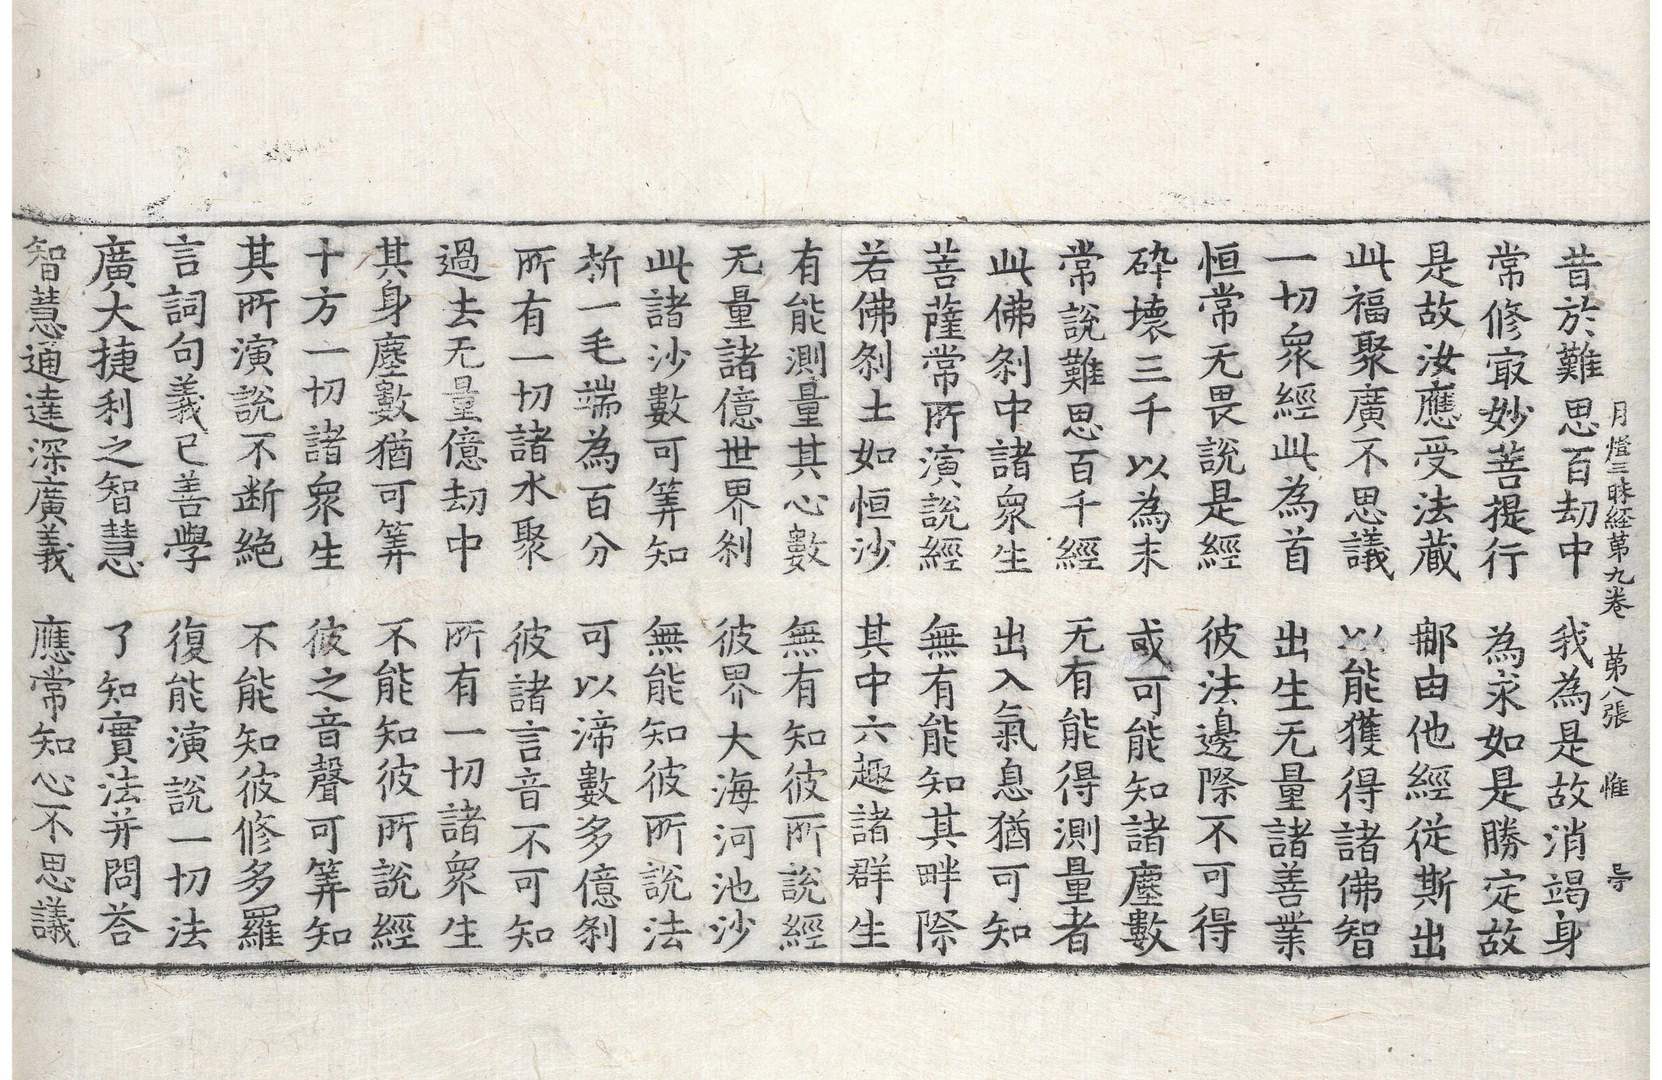 月燈三昧経苐九卷 苐八張 惟 㝵
昔於難思百劫中 我為是故消竭身
常修㝡妙菩提行 為求如是勝定故
是故汝應受法藏 郁由他經從斯出
此福聚廣不思議 以能獲得諸佛智
一切衆經此為首 出生无量諸善業
恒常无畏說是經 彼法邊際不可得
碎壞三千以為末 或可能知諸塵數
常說難思百千經 无有能得測量者
此佛刹中諸衆生 出入氣息猶可知
菩薩常所演說經 無有能知其畔際
若佛刹土如恒沙 其中六趣諸群生
有能測量其心數 無有知彼所說經
无量諸億世界刹 彼界大海河池沙
此諸沙數可筭知 無能知彼所說法
析一毛端為百分 可以渧數多億刹
所有一切諸水聚 彼諸言音不可知
過去无量億劫中 所有一切諸衆生
其身塵數猶可筭 不能知彼所說經
十方一切諸衆生 彼之音聲可筭知
其所演說不断絕 不能知彼修多羅
言詞句義已善學 復能演說一切法
廣大捷利之智慧 了知實法并問荅
智慧通達深廣義 應常知心不思議